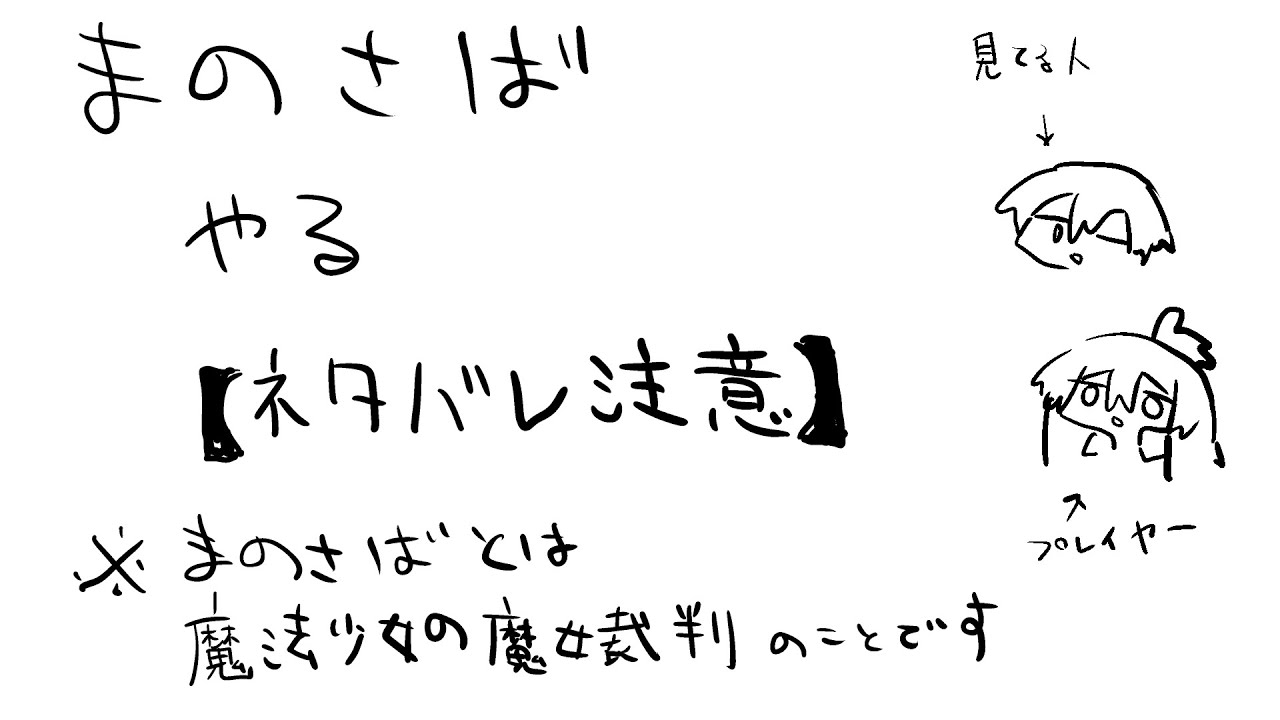 まのさば
やる
【ネタバレ注意】
※まのさばとは
魔法少女の魔女裁判のことです
見てる人
↓
↑
プレイヤー